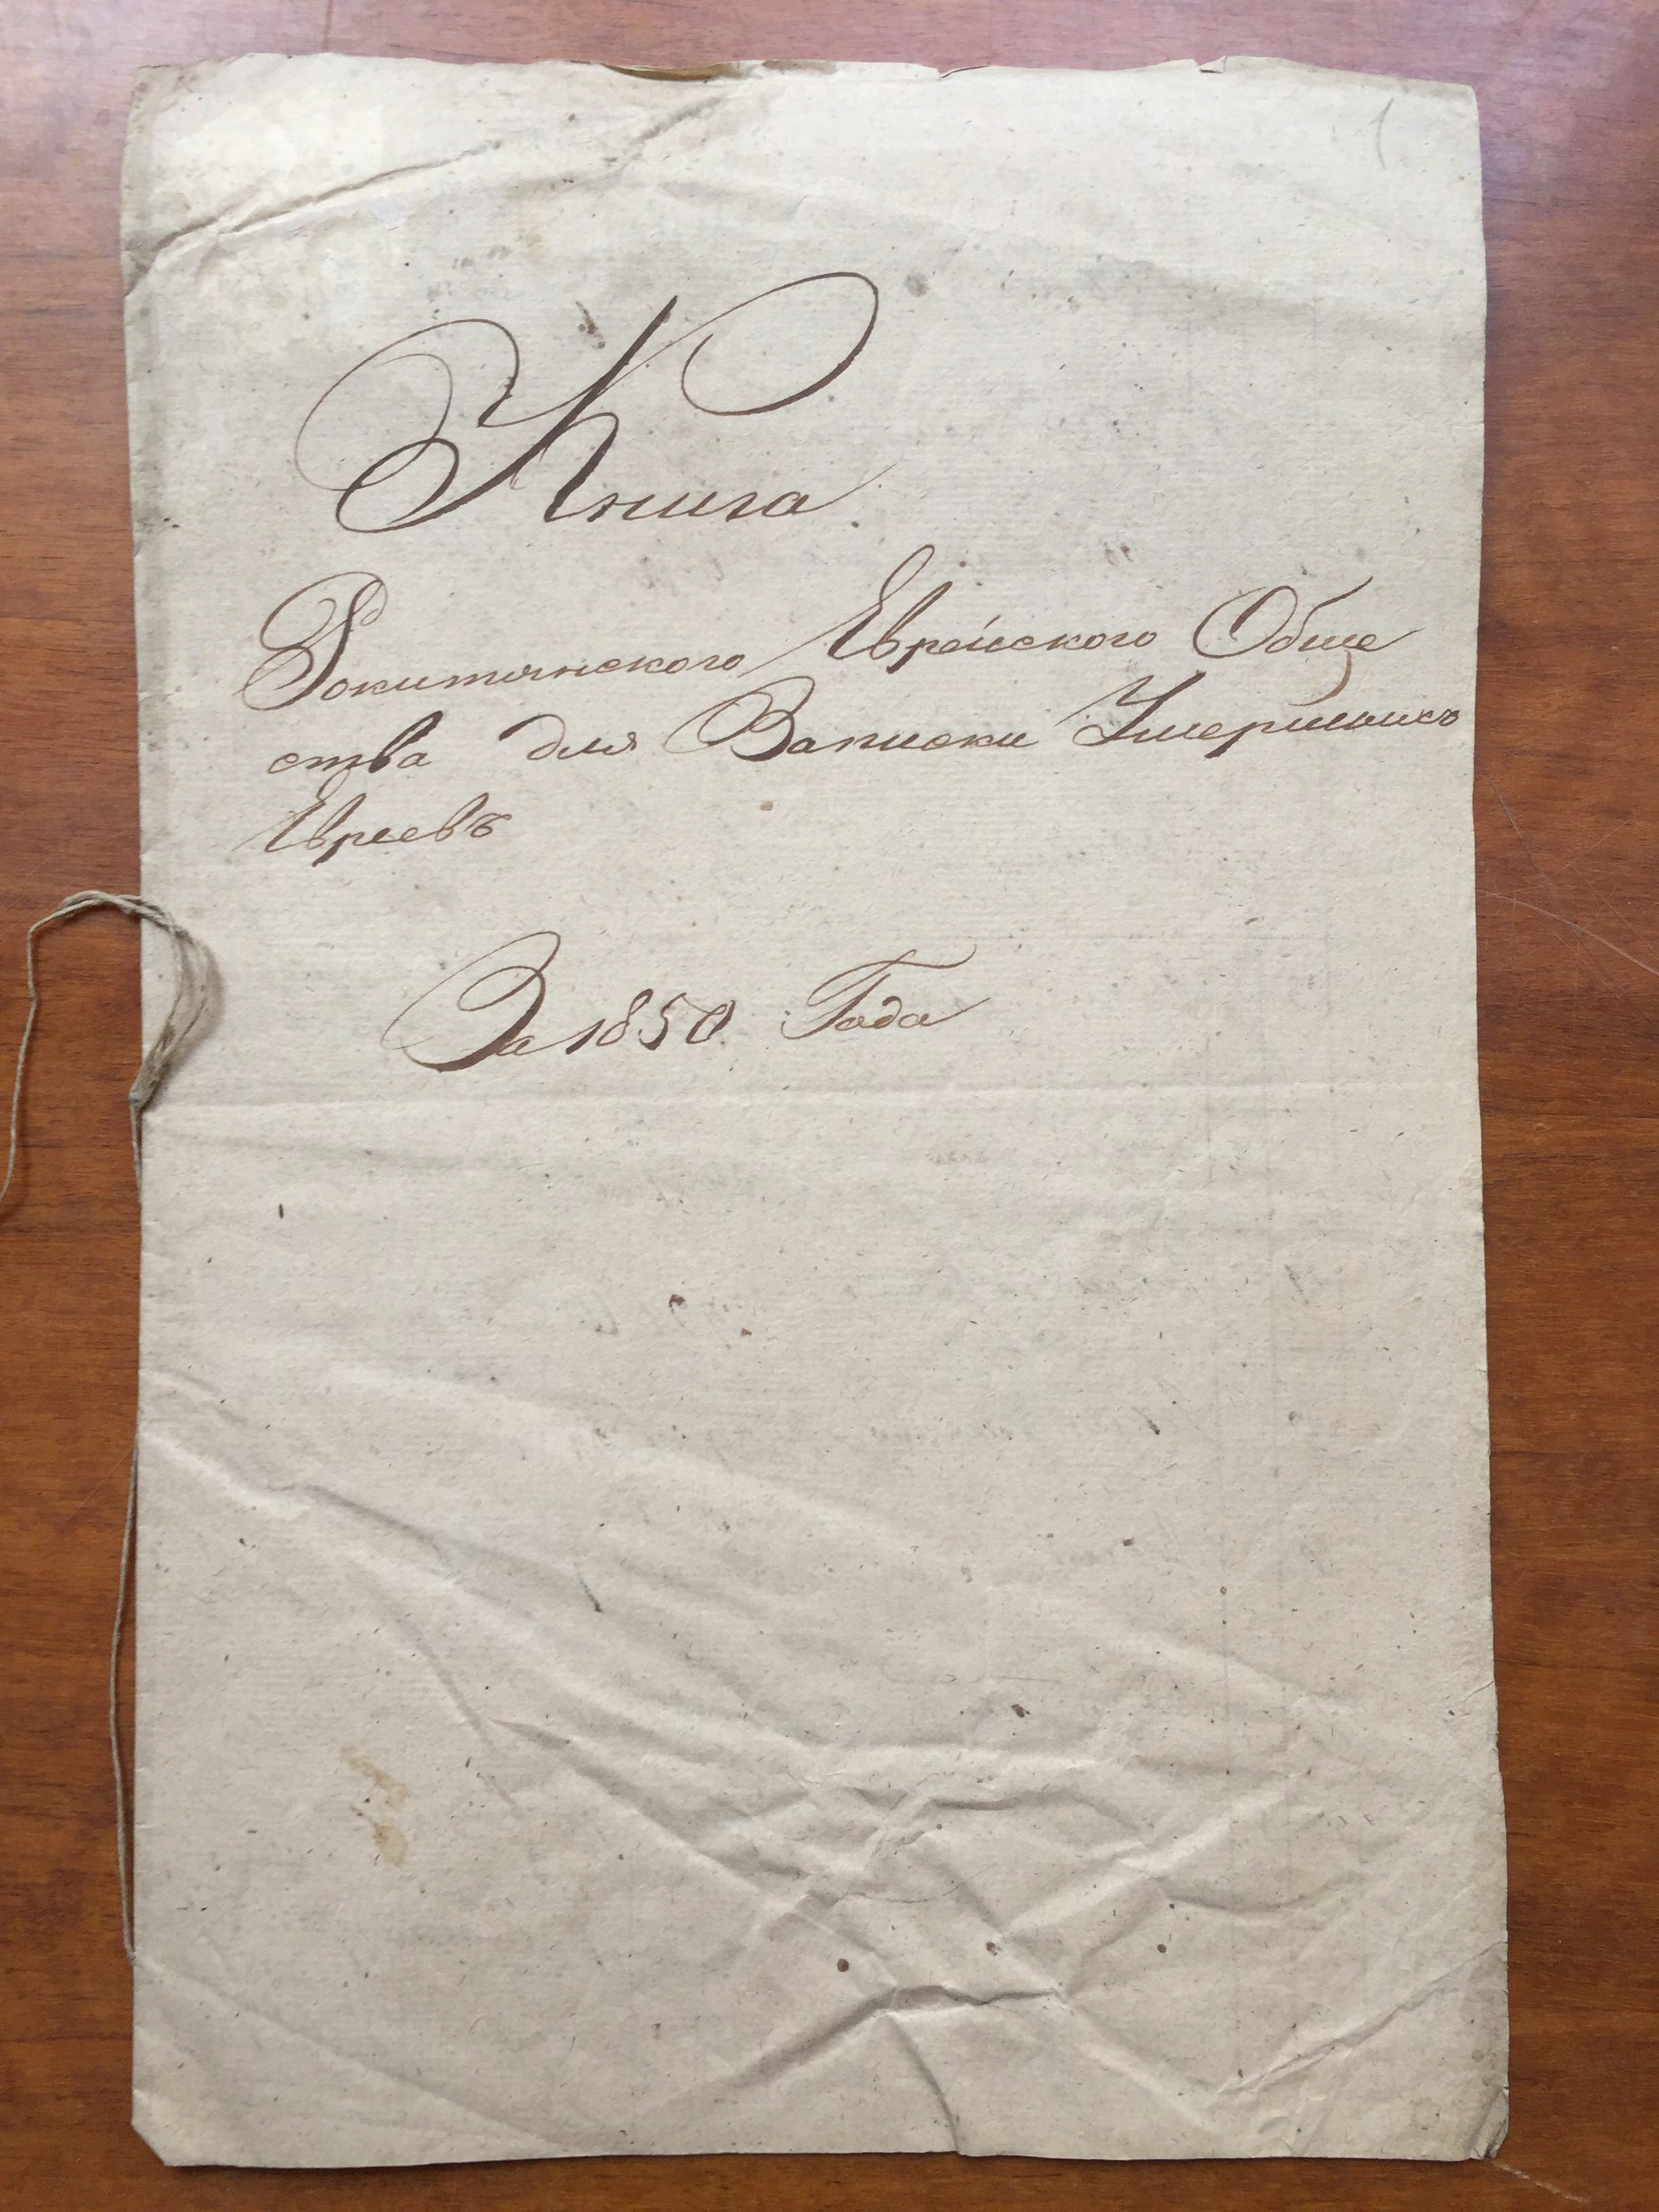 1
Книга
Рокитянского Еврейского Обще
ства для Записки Умершихъ
Евреевъ
За 1850 Года